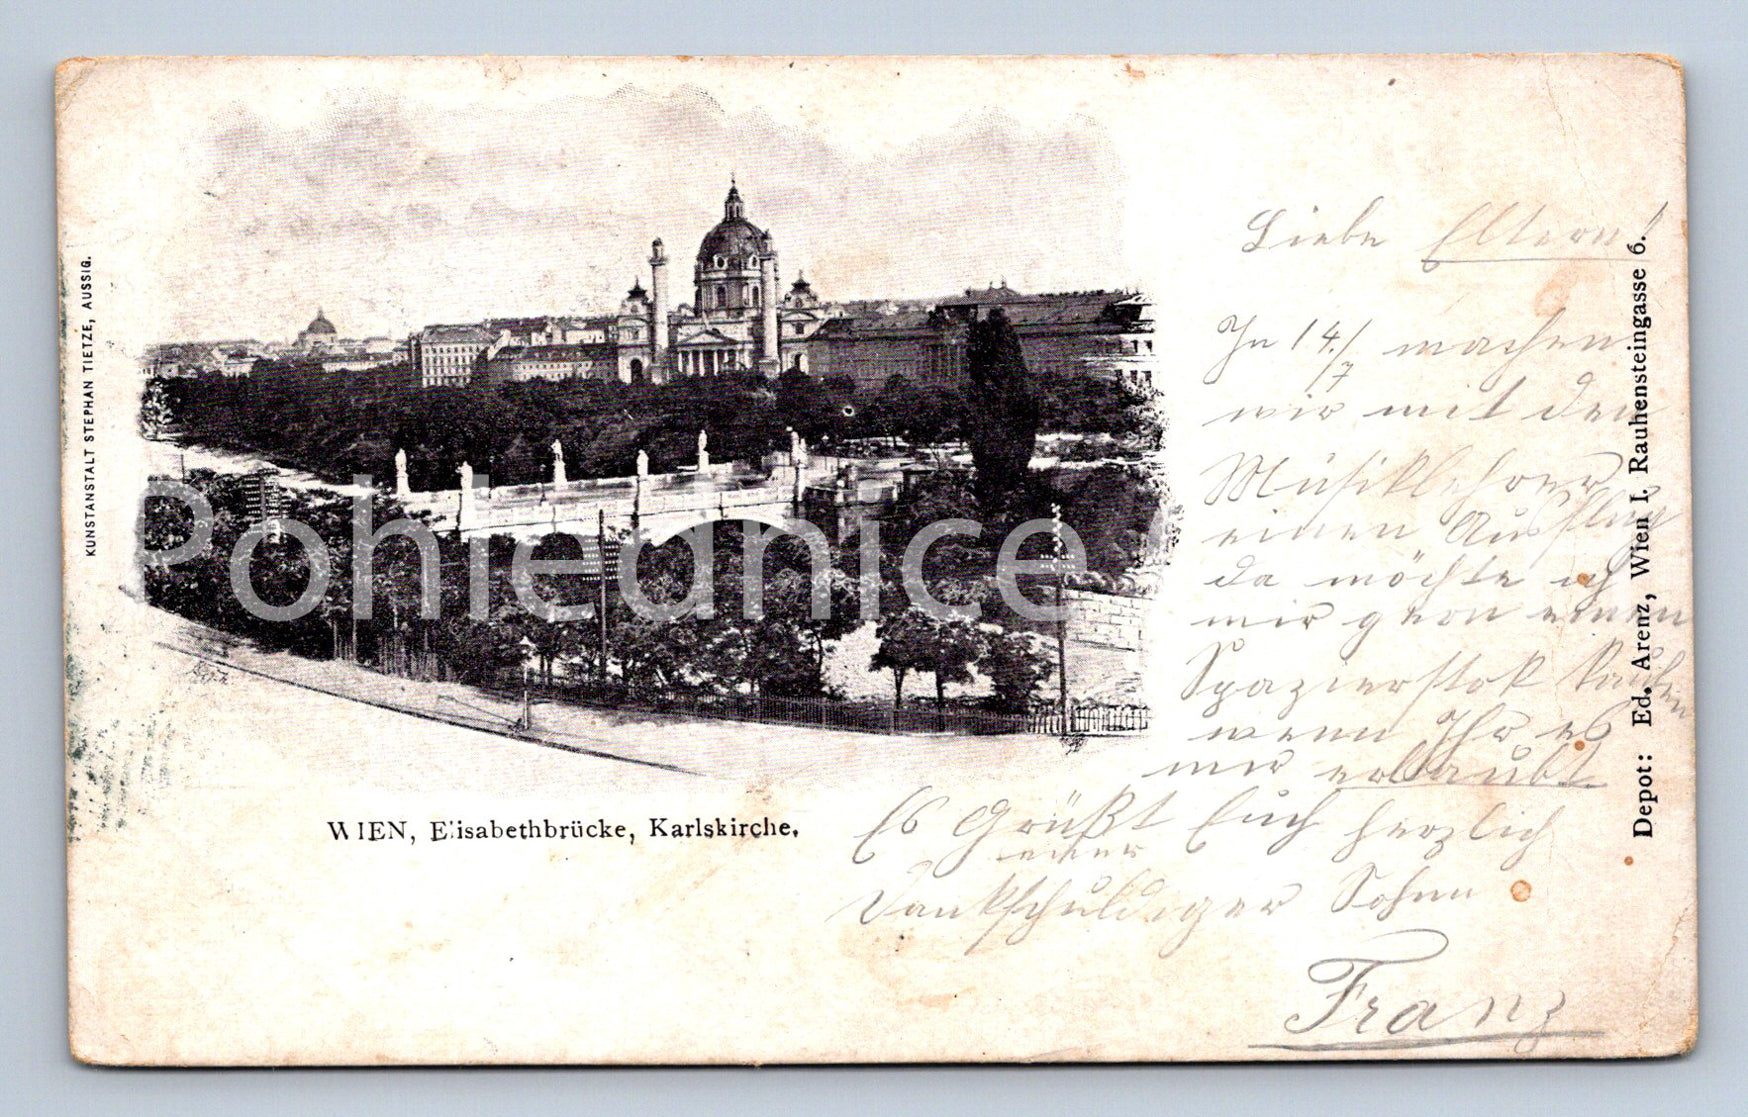 KUNSTANSTALT STEPHAN TIETZE, AUSSIG.
Pohlednice
WIEN, Elisabethbrücke, Karlskirche.
Liebe Eltern!
In 14./7 machen
wir mit den
Musiklehrer
einen Ausflug
da möchte ich
mir gern einen
Spazierstok kaufen
wenn Ihr es
mir erlaubt
Es Grüßt Euch herzlich
euer
Dankschuldiger Sohn
Franz
Depot: Ed. Arenz, Wien I. Rauhensteingasse 6.